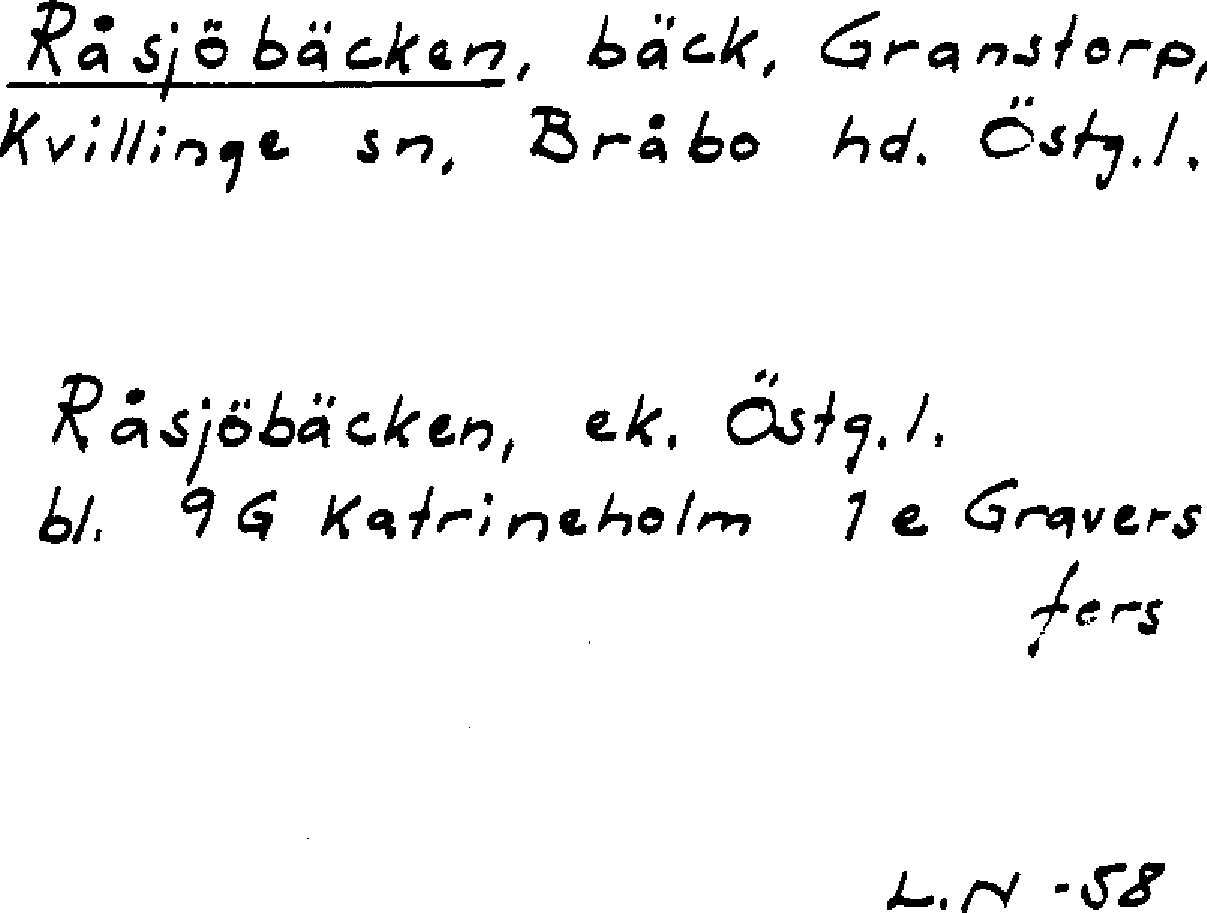 Råsjöbäcken, bäck, Granstorp,
Kvillinge sn, Bråbo hd. Östg.l.
Råsjöbäcken, ek. Östg.l.
bl. 9G Katrineholm 1e Gravers
fers
L.N -58